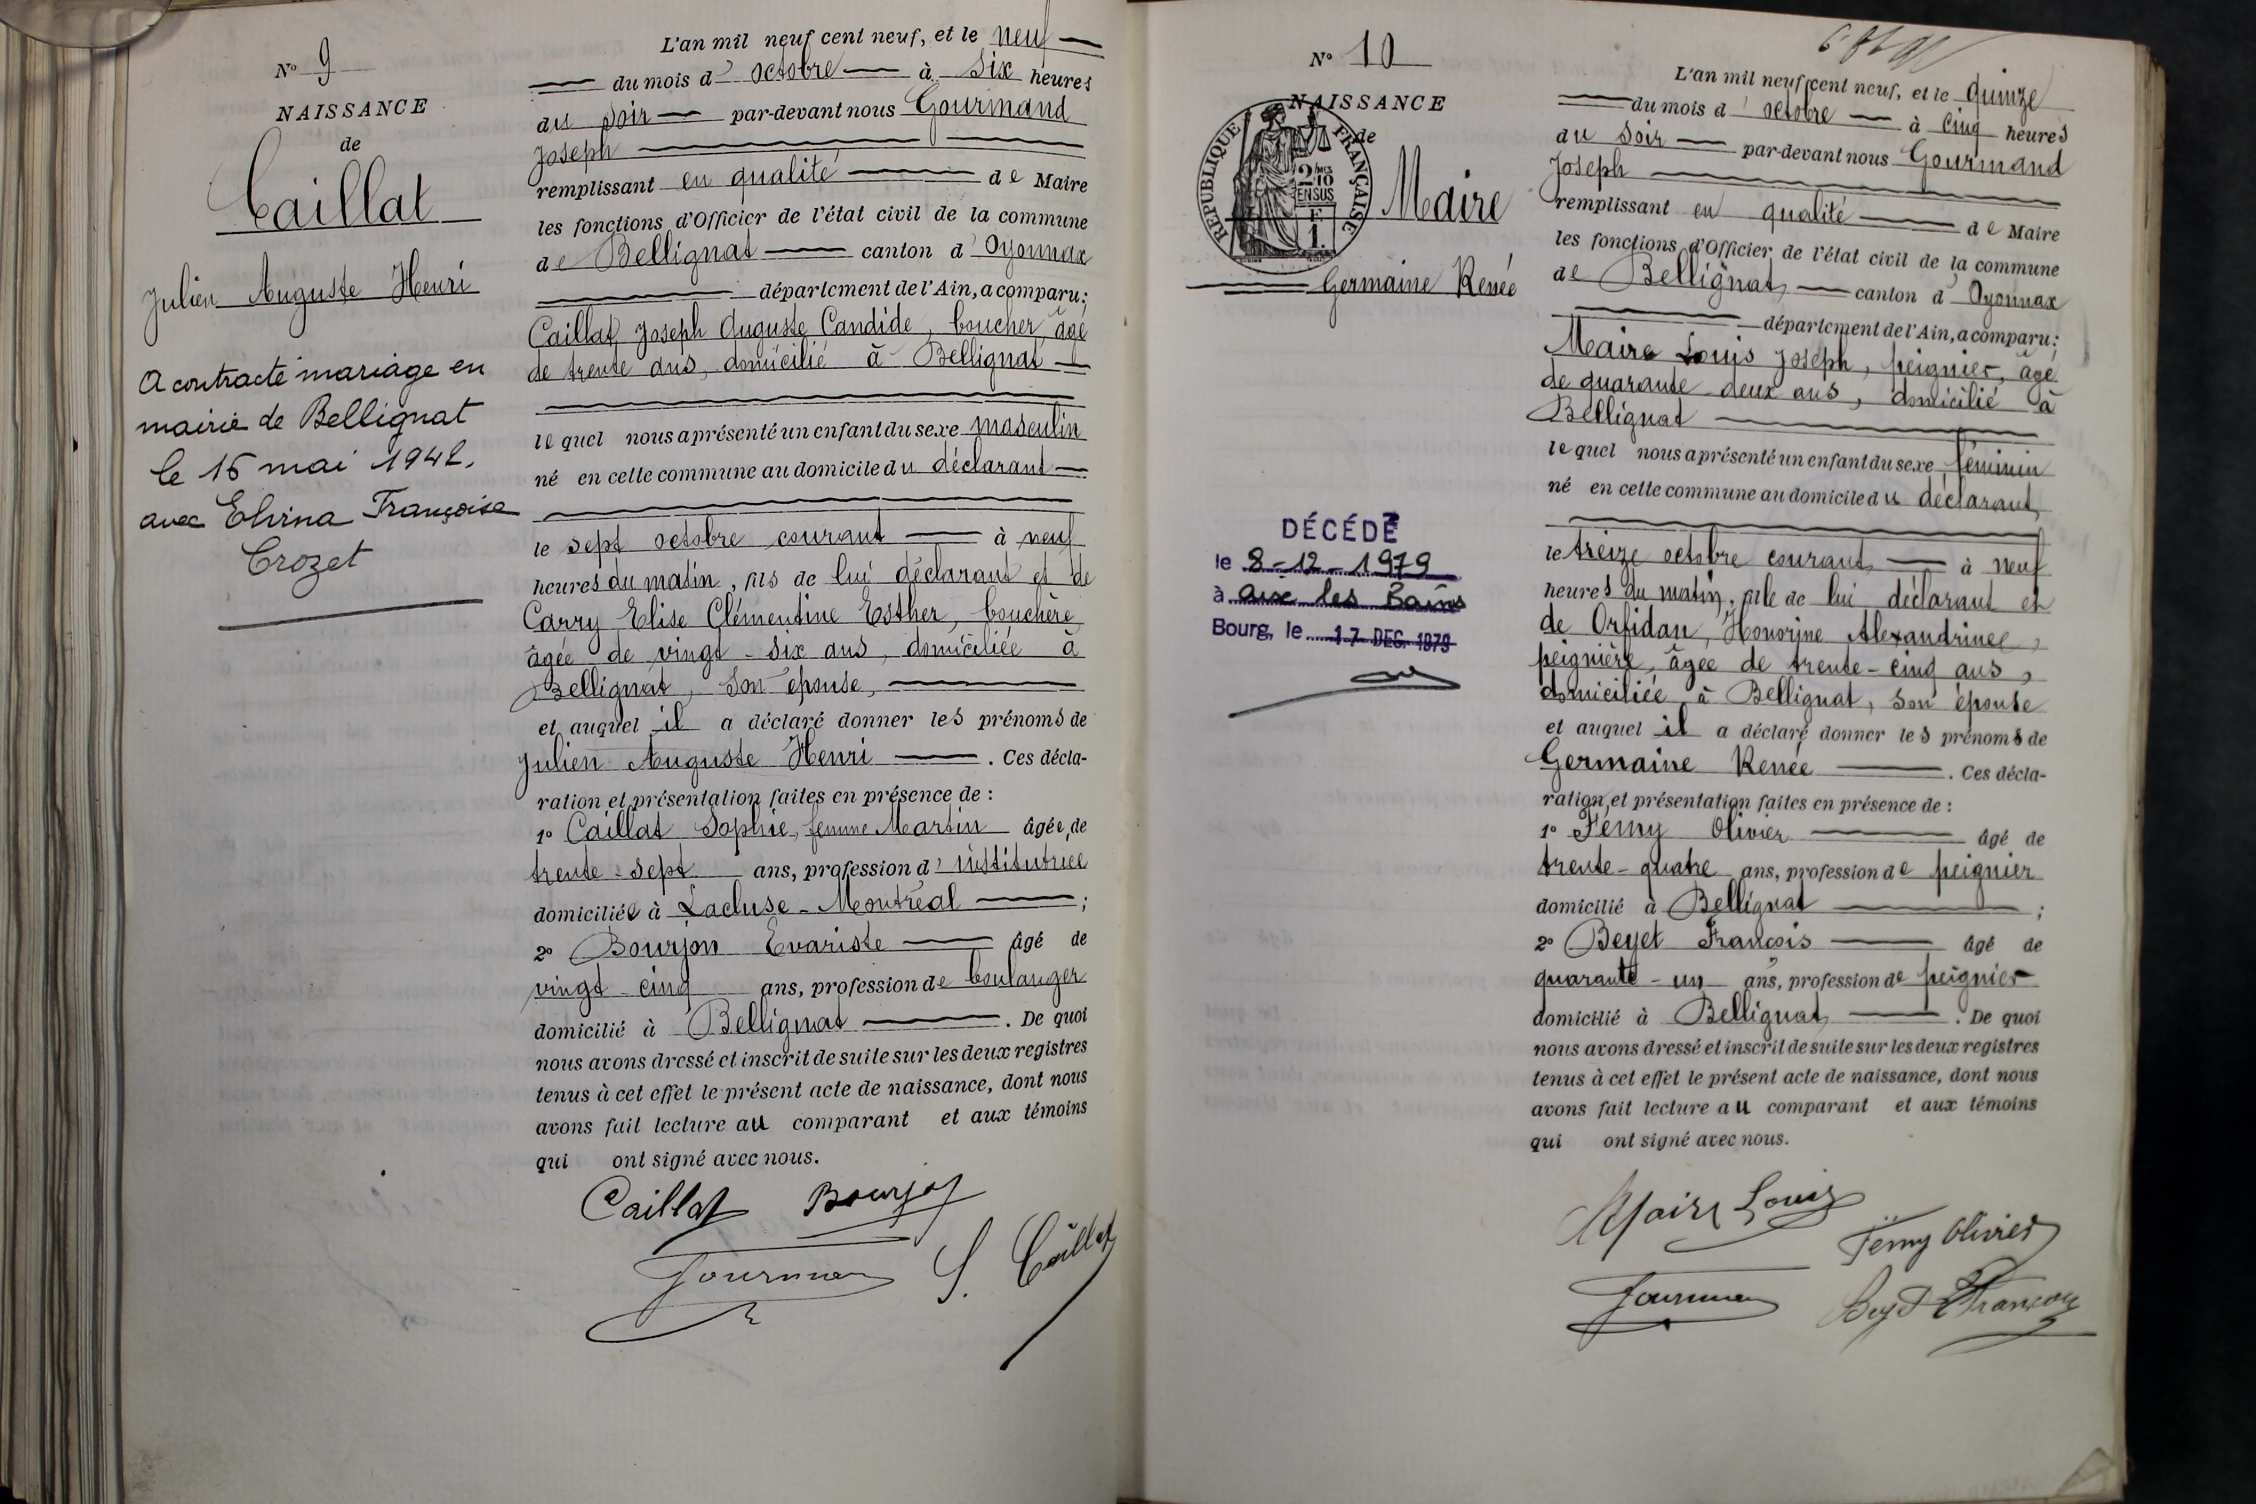 N° 9
NAISSANCE
de
Caillat
Julien Auguste Henri
A contracté mariage en
mairie de Bellignat
le 16 mai 1942.
avec Elvina Françoise
Crozet
L'an mil neuf cent neuf, et le neuf
du mois d'octobre à six heures
du soir par-devant nous Gourmand
Joseph
remplissant en qualité de Maire
les fonctions d'Officier de l'état civil de la commune
de Bellignat canton d'Oyonnax
département de l'Ain, a comparu:
Caillat Joseph Auguste Candide, boucher âgé
de trente ans, domicilié à Bellignat
lequel nous a présenté un enfant du sexe masculin
né en cette commune au domicile du déclarant
le sept octobre courant à neuf
heures du matin, fils de lui déclarant et de
Carry Elise Clémentine Esther, bouchère,
âgée de vingt-six ans, domiciliée à
Bellignat, son épouse,
et auquel il a déclaré donner les prénoms de
Julien Auguste Henri. Ces décla-
ration et présentation faites en présence de :
1° Caillat Sophie, femme Martin âgée de
trente-sept ans, profession d'institutrice
domiciliée à Lacluse-Montréal ;
2° Bourjon Evariste âgé de
vingt cinq ans, profession de boulanger
domicilié à Bellignat. De quoi
nous avons dressé et inscrit de suite sur les deux registres
tenus à cet effet le présent acte de naissance, dont nous
avons fait lecture au comparant et aux témoins
qui ont signé avec nous.
Caillat Bourjon
S. Caillat
N° 10
NAISSANCE
de
RÉPUBLIQUE FRANÇAISE
2/10 EN SUS
F. 1.
Maire
Germaine Renée
DÉCÉDÉ
le 8-12-1979
à Aix les Bains
Bourg, le 17 DEC. 1979
L'an mil neuf cent neuf, et le quinze
du mois d'octobre à cinq heures
du soir par-devant nous Gourmand
Joseph
remplissant en qualité de Maire
les fonctions d'Officier de l'état civil de la commune
de Bellignat canton d'Oyonnax
département de l'Ain, a comparu:
Maire Louis Joseph, peignier, âgé
de quarante-deux ans, domicilié à
Bellignat
lequel nous a présenté un enfant du sexe féminin
né en cette commune au domicile du déclarant,
le treize octobre courant à neuf
heures du matin, fille de lui déclarant et
de Orfidan, Honorine Alexandrine,
peignière, âgée de trente-cinq ans,
domiciliée à Bellignat, son épouse
et auquel il a déclaré donner les prénoms de
Germaine Renée. Ces décla-
ration et présentation faites en présence de :
1° Fémy Olivier âgé de
trente-quatre ans, profession de peignier
domicilié à Bellignat ;
2° Beyet François âgé de
quarante-un ans, profession de peignier
domicilié à Bellignat. De quoi
nous avons dressé et inscrit de suite sur les deux registres
tenus à cet effet le présent acte de naissance, dont nous
avons fait lecture au comparant et aux témoins
qui ont signé avec nous.
Maire Louis
Fémy Olivier
Beyet François